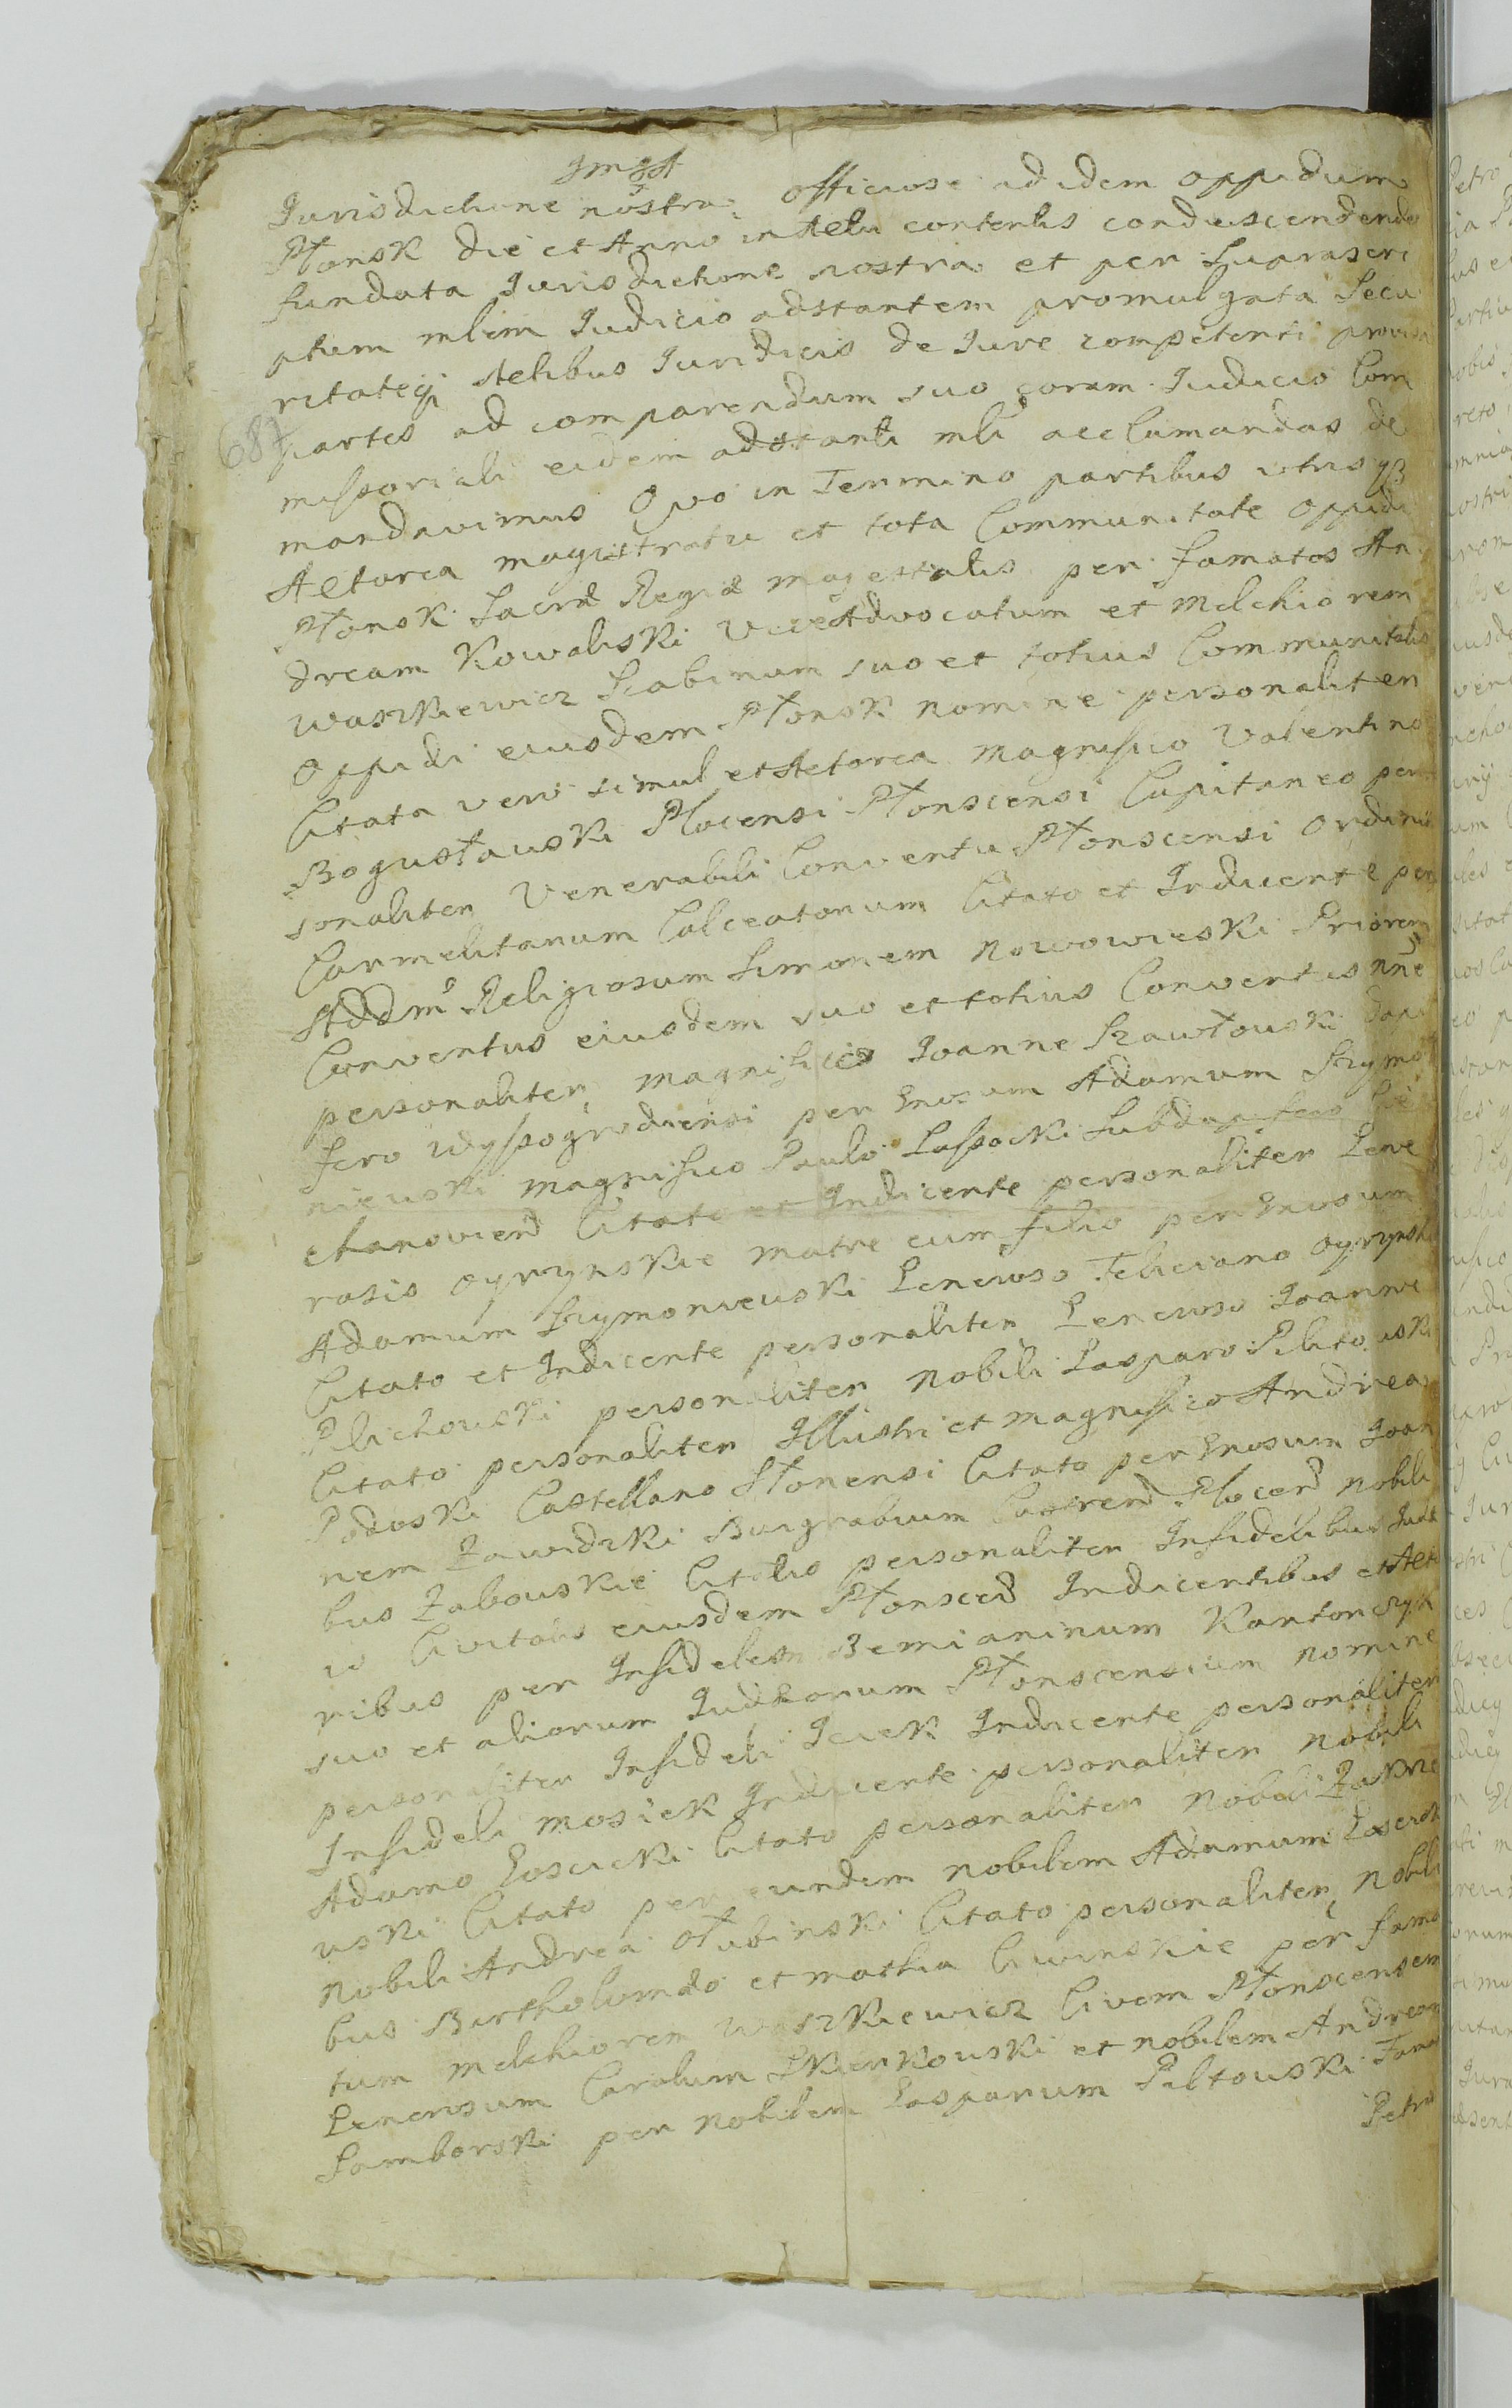 Jurisdictione nostra officiose ad idem oppidum
Płonsk die et Anno in Actu contentis condescendendo
fundata Jurisdictione nostra et per suprascri
ptum mlem Judicio adstantem promulgata Secu
ritateq Actibus Juridicis de Jure competenti provisa
687
partes ad comparendum suo coram Judicio Com
missoriali eidem adstanti mli acclamandas de
mandavimus Quo in Termino partibus utrisq
Actorea magistratu et tota Communitate Oppidi
Płonsk Sacræ Regiæ Majestatis per famatos An
dream Kowalski ViceAdvocatum et Melchiorem
Waszkiewicz Scabinum suo et totius Communitatis
Oppidi eiusdem Płonsk nomine personaliter
Citata vero simul et Actorea Magnifico Valentino
Bogusławski Plocensi Płonscensi Capitaneo per
sonaliter Venerabili Conventu Płonscensi Ordinis
Carmelitarum Calceatorum Citato et Inducente per
Addm Religiosum Simonem Nowowieski Priorem
Conventus eiusdem suo et totius Conventus nne
personaliter Magnifico Joanne Szawłowski Dapi
fero Wyssogrodiensi per Gnosum Adamum Szymo
niewski Magnifico Paulo Lassocki Subdapifero Cie
chanovien Citato et Inducente personaliter Gene
rosis Ogrynskie matre cum filio per Gnosum
Adamum Szymoniewski Generoso Feliciano Ogrynski
Citato et Inducente personaliter Generoso Joanne
Pilichowski personaliter Nobili Gasparo Pilitowski
Citato personaliter Illustri et Magnifico Andrea
Podoski Castellano Płonensi Citato per Gnosum Joan
nem Zawidzki Burgrabium Castren Plocen Nobili
bus Zabowskie Citatis personaliter Infidelibus Judæ
is Civitatis eiusdem Płonscen Inducentibus et Acto
ribus per Infidelem Bemianinum Kantorczyk
suo et aliorum Judæorum Płonscensium nomine
personaliter Infideli Icek Inducente personaliter
Infideli Mosiek Inducente personaliter Nobili
Adamo Goscicki Citato personaliter Nobili Zakrze
wski Citato per eundem nobilem Adamum Goscicki
Nobili Andrea Otubinski Citato personaliter Nobili
bus Bartholomæo et Mathia Ciwinskie per fama
tum Melchiorem Waszkiewicz Civem Płonscensem
Generosum Carolum Skierkowski et nobilem Andream
Samborski per Nobilem Gasparum Piltowski Fama
Petro